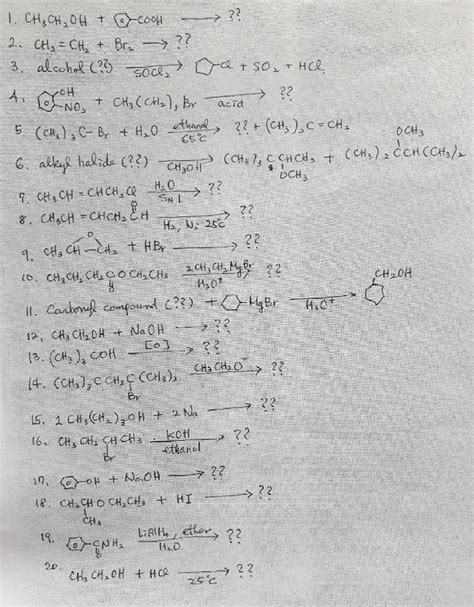 1. CH₃CH₂OH + -COOH → ??
2. CH₂=CH₂ + Br₂ → ??
3. alcohol (??) SOCl₂ → -Cl + SO₂ + HCl
4. OH NO₂ + CH₃(CH₂)₂Br acid → ??
5. (CH₃)₃C-Br + H₂O ethanol 65°C → ?? + (CH₃)₂C=CH₂
6. alkyl halide (??) CH₃OH → (CH₃)₃CCHCH₃ OCH₃ + (CH₃)₂CCH(CH₃)₂ OCH₃
7. CH₃CH=CHCH₂Cl H₂O SN1 → ??
8. CH₃CH=CHCH₂CH O H₂, Ni 25°C → ??
9. CH₃CH-CH₂ O + HBr → ??
10. CH₃CH₂CH₂COCH₂CH₃ O 2CH₃CH₂MgBr H₃O⁺ → ??
11. Carbonyl compound (??) + -MgBr H₃O⁺ → CH₂OH
12. CH₃CH₂OH + NaOH → ??
13. (CH₃)₃COH [O] → ??
14. (CH₃)₃CCH₂C(CH₃)₂ Br CH₃CH₂O⁻ → ??
15. 2CH₃(CH₂)₃OH + 2Na → ??
16. CH₃CH₂CHCH₃ Br KOH ethanol → ??
17. -OH + NaOH → ??
18. CH₃CHOCH₂CH₃ CH₃ + HI → ??
19. -CNH₂ O LiAlH₄, ether H₂O → ??
20. CH₃CH₂OH + HCl 25°C → ??